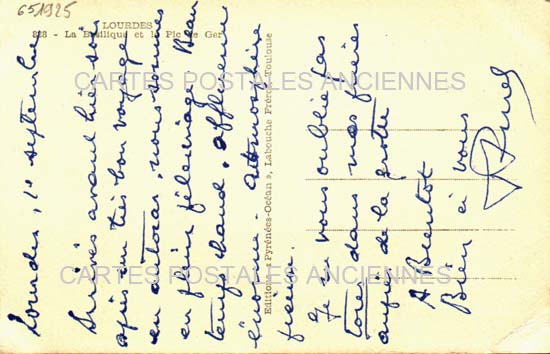 651925
LOURDES
828 - La Basilique et le Pic de Ger
Lourdes, 10 septembre
Arrivés avant hier soir
après un très bon voyage
en autocar, nous sommes
en plein pélerinage. Beau
temps chaud. affluence
énorme - atmosphère
pieuse.
Je ne vous oublie pas
tous dans mes prières
auprès de la grotte
A Bientôt
Bien à vous
Editions « Pyrénées-Océan », Labouche Frères, Toulouse
CARTES POSTALES ANCIENNES
CARTES POSTALES ANCIENNES